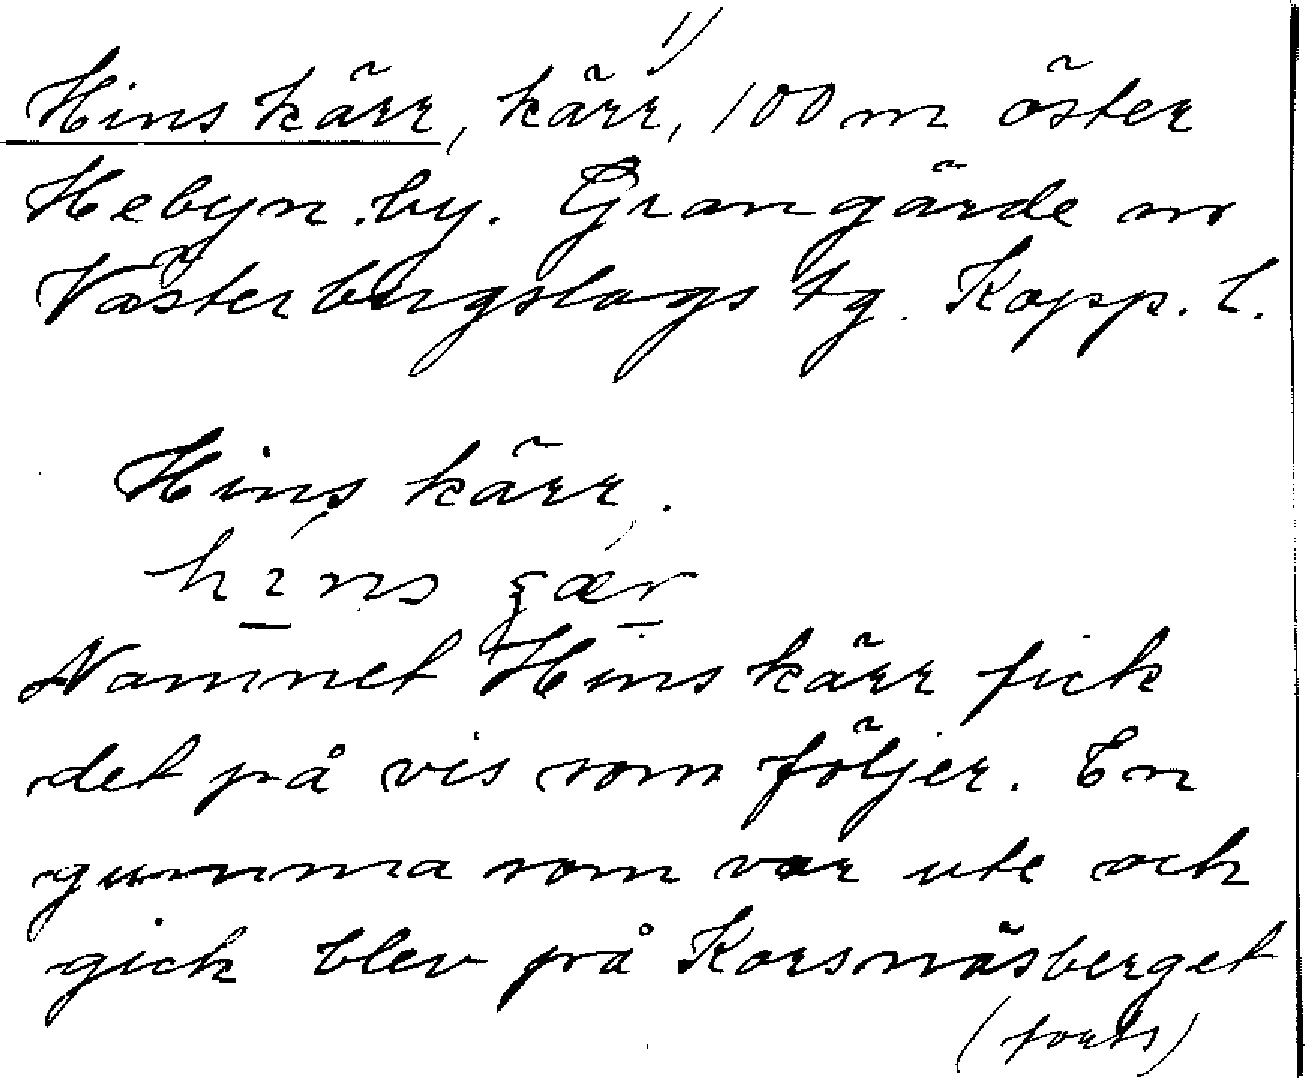 1)
Hins kärr, kärr, 100 m öster
Hebyn by. Grangärde sn
Västerbergslags tg. Kopp. l.
Hins kärr.
Namnet Hins kärr fick
det på vis som följer. En
gumma som var ute och
gick blev på Korsnäsberget
(forts)